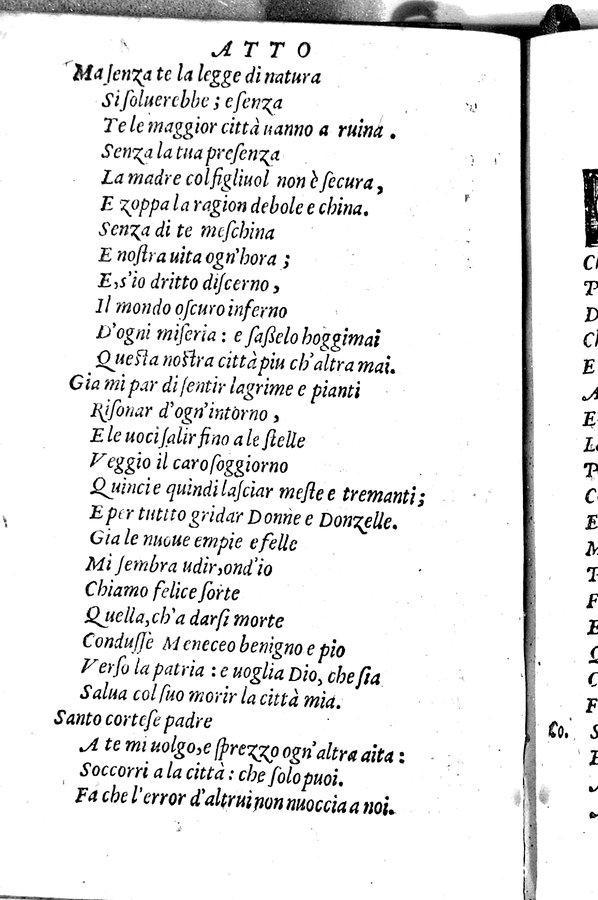 ATTO
Ma ſenza te la legge di natura
Si ſoluerebbe; e ſenza
Te le maggior città uanno a ruina.
Senza la tua preſenza
La madre col figliuol non è ſecura,
E zoppa la ragion debole e china.
Senza di te meſchina
E noſtra uita ogn'hora;
E, s'io dritto diſcerno,
Il mondo oſcuro inferno
D'ogni miſeria: e ſaßelo hoggimai
Queſta noſtra città piu ch'altra mai.
Gia mi par di ſentir lagrime e pianti
Riſonar d'ogn'intorno,
E le uoci ſalir fino a le ſtelle
Veggio il caro ſoggiorno
Quinci e quindi laſciar meſte e tremanti;
E per tuttto gridar Donne e Donzelle.
Gia le nuoue empie e felle
Mi ſembra udir, ond'io
Chiamo felice ſorte
Quella, ch'a darſi morte
Conduſſe Meneceo benigno e pio
Verſo la patria: e uoglia Dio, che ſia
Salua col ſuo morir la città mia.
Santo corteſe padre
A te mi uolgo, e ſprezzo ogn'altra aita:
Soccorri a la città: che ſolo puoi.
Fa che l'error d'altrui non nuoccia a noi.
Co.